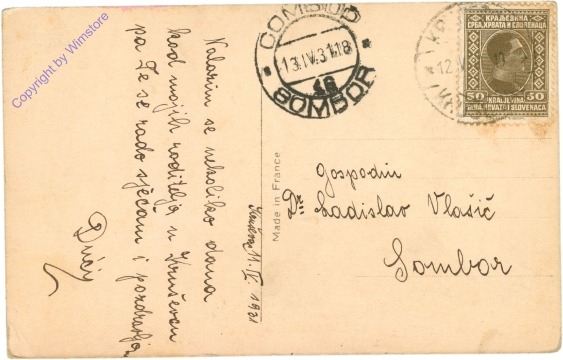 Nalazim se nekoliko dana
kod mojih roditelja u Kruševcu
pa Te se rado sjećam i pozdravljam
11. IV. 1931
Made in France
Gospodin
Dr Ladislav Vlašić
Sombor
СОМБОР
13.IV.31.18
SOMBOR
КРАЉЕВИНА
СРБА, ХРВАТА И СЛОВЕНАЦА
50 KRALJEVINA 50
SRBA, HRVATA I SLOVENACA
Copyright by Wimstore